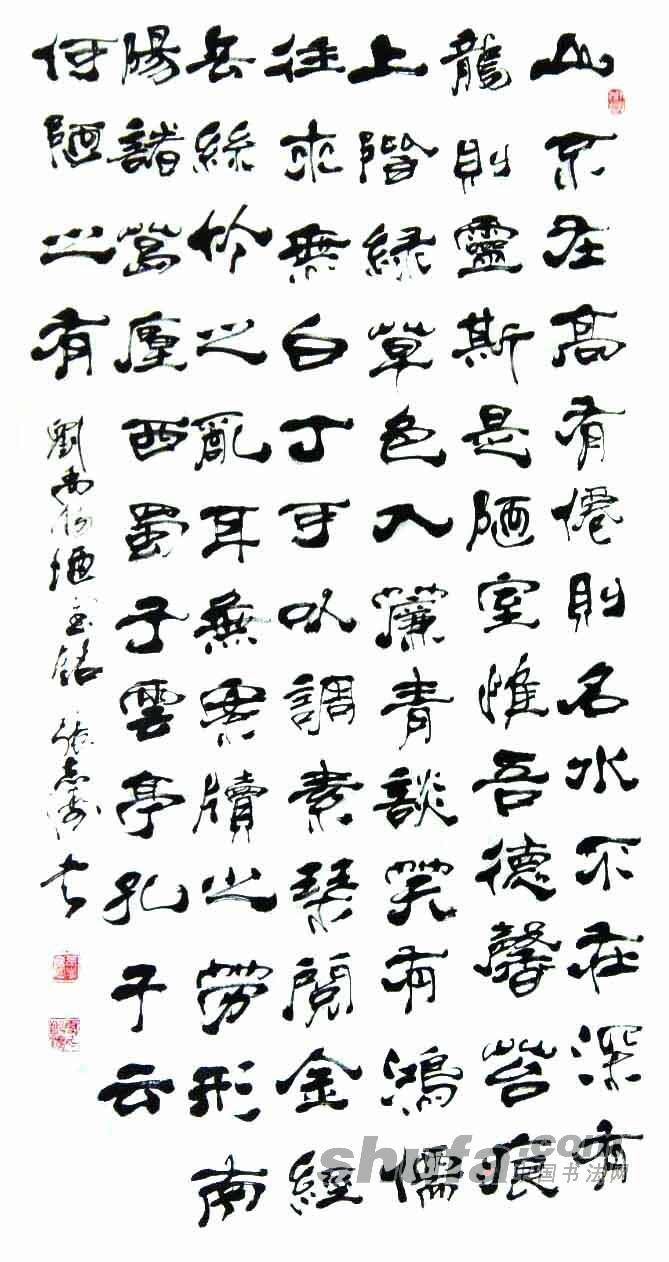 山不在高有僊則名水不在深有
龍則靈斯是陋室惟吾德馨苔痕
上階緑草色入簾青談笑有鴻儒
往來無白丁可以調素琴閱金經
絲竹之亂耳無案牘之勞形南
陽諸葛廬西蜀子雲亭孔子云
何陋之有
劉禹錫陋室銘 張志 書
shufa.com
中国书法网